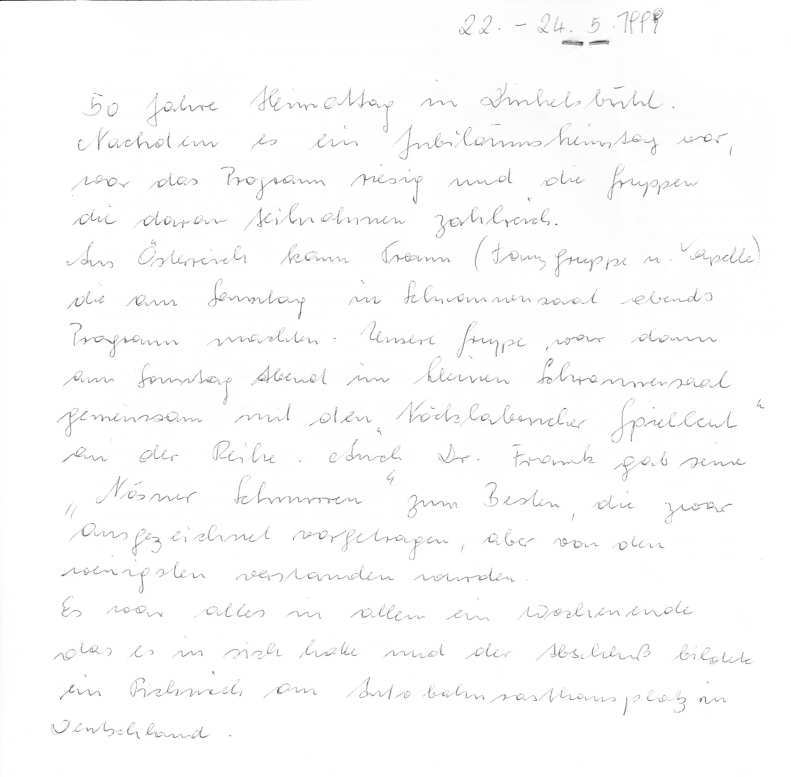 22. - 24. 5. 1999
50 Jahre Heimattag in Dinkelsbühl.
Nachdem es ein Jubiläumsheimattag war,
war das Programm riesig und die Gruppen
die daran teilnahmen zahlreich.
Aus Österreich kam Traun (Tanzgruppe u. Kapelle)
die am Sonntag in Schrannensaal abends
Programm machten. Unsere Gruppe war dann
am Sonntag Abend im kleinen Schrannensaal
gemeinsam mit den „Nöckstabücher Spielleut"
an der Reihe. Auch Dr. Frank gab seine
„Nösner Schnurren" zum Besten, die zwar
ausgezeichnet vorgetragen, aber von den
wenigsten verstanden wurden.
Es war alles in allem ein Wochenende
das es in sich hatte und der Abschluß bildete
ein Picknick am Autobahnrasthausplatz in
Deutschland.